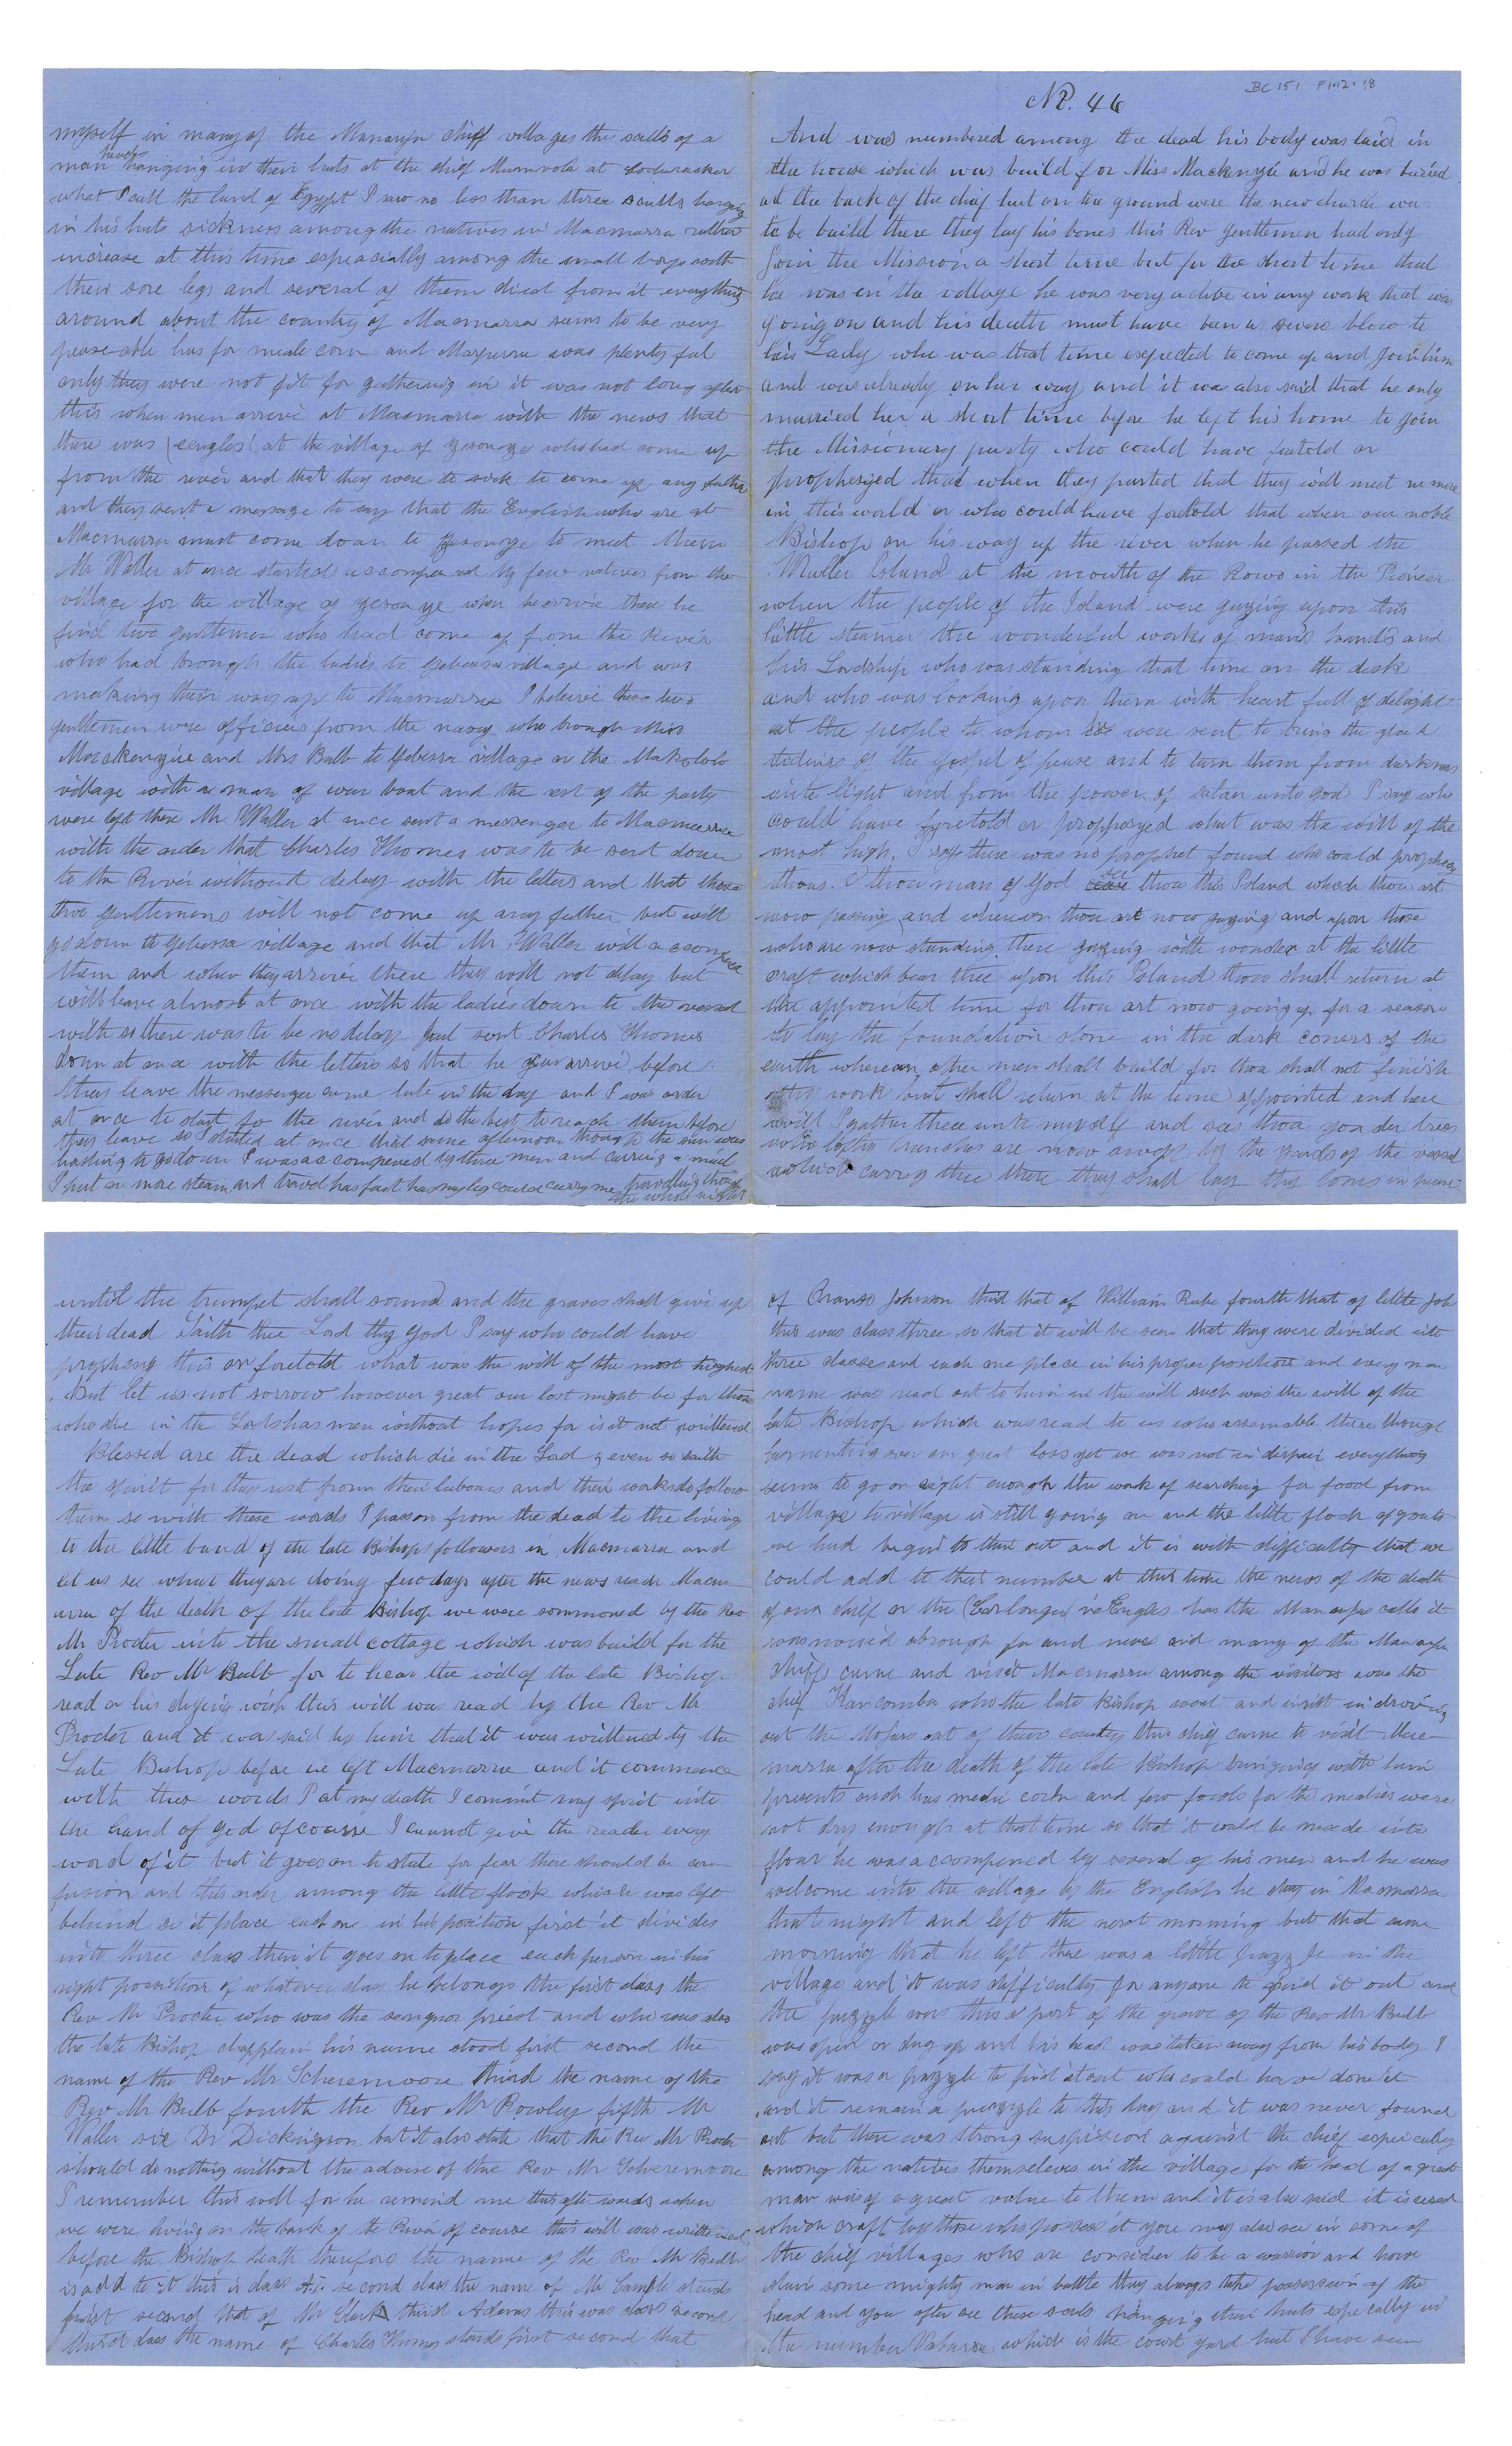 BC 151 F1.12.18
No. 46
And was numbered among the dead his body was laid in
the house which was build for Miss Mackenzie and he was buried
at the back of the chief hut on the ground were the new church was
to be build there they lay his bones this Rev gentlemen had only
join the Mission a short time but for the short time that
he was in the village he was very active in any work that was
going on and his death must have been a severe blow to
his Lady who was that time expected to come up and join him
and was already on her way and it was also said that he only
married her a short time before he left his home to join
the Missionary party who could have foretold or
prophesyed that when they parted that they will meet no more
in this world or who could have foretold that when our noble
Bishop on his way up the river when he passed the
Maller Island at the mouth of the Rowo in the Pioneer
when the people of the Island were gazing upon this
little steamer the wonderful works of man's hands and
his Lordship who was standing that time on the deck
and who was looking upon them with heart full of delight
at the people to whom he were sent to bring the glad
tidings of the gospel of peace and to turn them from darkness
into light and from the power of satan unto god I say who
could have foretold or propposyed what was the will of the
most high. I say there was no prophet found who could prophesy
thous. O thou man of God see thou this Island which thou art
now passing and whereon thou art now gazing and upon those
who are now standing there gazing with wonder at the little
craft which bear thee upon this Island thou shall return at
the appointed time for thou art now going up for a season
to lay the foundation stone in the dark coners of the
earth whereon other men shall build for thou shall not finish
thy work but shall return at the time appointed and here
will I gather thee unto myself and sees thou yonder trees
who lofty branches are now swept by the yards of the vessel
which carry thee there they shall lay thy bones in peace
until the trumpet shall sound and the graves shall give up
their dead saith the Lord thy god I say who could have
prophesy this or foretold what was the will of the most highest
But let us not sorrow however great our lost might be for those
who die in the Lord has men without hopes for is it not writtend
Blessed are the dead which die in the Lord ; even so saith
the spirit for they rest from their labours and their works do follow
them so with these words I pass on from the dead to the living
to the little band of the late Bishops followers in Macmarra and
let us see what they are doing few days after the news reach Macm-
arra of the death of the late Bishop we were sommoned by the Rev
Mr Procter into the small cottage which was build for the
Late Rev Mr Bulb for to hear the will of the late Bishop
read or his dying wish this will was read by the Rev Mr
Procter and it was said by him that it was writtened by the
Late Bishop before we left Macmarra and it commence
with these words I at my death I commit my spirit into
the hand of god of course I cannot give the reader every
word of it but it goes on to state for fear there should be con-
fusion and disorder among the little flock which was left
behind so it place each one in his position first it divides
into three class then it goes on to place each person in his
right position of whatever class he belongs the first class the
Rev Mr Procter who was the seniour priest and who was also
the late Bishop chapplain his name stood first second the
name of the Rev Mr Scheremoore third the name of the
Rev Mr Bulb fourth the Rev Mr Rowley fifth Mr
Waller six Dr Dickingson but it also state that the Rev Mr Procter
should do nothing without the advise of the Rev Mr Scheremoore
I remember this well for he remind me this afterwards when
we were living on the bank of the River of course this will was writtened
before the Bishop death therefore the name of the Rev Mr Bulb
is add to it this is class A.1. second class the name of Mr Gamble stands
first second that of Mr Clark third Adams this was class second
third class the name of Charles Thomes stands first second that
of Oranso Johnson third that of William Rube fourth that of little Job
this was class three so that it will be seen that they were divided into
three classes and each one place in his proper position and every man
name was read out to him in the will such was the will of the
late Bishop which was read to us who assemable there though
lamenting over our great loss yet we was not in dispair everything
seems to go on right enough the work of searching for food from
village to village is still going on and the little flock of goats
we had begin to thin out and it is with difficulty that we
could add to their number at this time the news of the death
of our chief or the (Earlonger) has the Mananja calls it
was noised abrough far and near and many of the Mananja
chiefs came and visit Macmarra among the visitors was the
chief Kancomba who the late Bishop went and insist in driving
out the Mohars out of their country this chief came to visit Mac-
marra after the death of the late Bishop bringing with him
presents such has medli corn and few fools for the mealies were
not dry enough at that time so that it could be made into
flour he was accompened by several of his men and he was
welcome into the village by the English he stay in Macmarra
that night and left the next morning but that same
morning that he left there was a little puzzle in the
village and it was difficulty for anyone to find it out and
the puzzle was this a part of the grave of the Rev Mr Bulb
was open or dug up and his head was taken away from his body I
say it was a puzzle to find it out who could have done it
and it remain a puzzle to this day and it was never found
out but there was strong suspision against the chief especially
among the natives themselves in the village for the head of a great
man was of a great value to them and it is also said it is used
which craft by those who possess it you may also see in some of
the chief villages who are consider to be a warrior and have
slain some mighty man in battle they always take possession of the
head and you after see these sculls hanging in their huts especially in
the number Vabarra which is the court yard hut I have seen
myself in many of the Mananja chiff villages the sculls of a
man head hanging in their huts at the chief Mumvola at Sochuracker
what I call the land of Egypt I saw no less than three sculls hanging
in his huts sickness among the natives in Macmarra rather
increase at this time espeacially among the small boys with
their sore legs and several of them died from it everything
around about the country of Macmarra seems to be very
pease able has for meale corn and Mazurra was plenty ful
only they were not fit for gathering in it was not long after
this when men arrive at Macmarra with the news that
there was (eengles) at the village of yesonge who had come up
from the river and that they were to sick to come up any futher
and they sent a message to say that the English who are at
Macmarra must come down to yesonge to meet them
Mr Waller at once started accompened by few natives from the
village for the village of yesonge when he arrive there he
find two gentlemen who had come up from the River
who had brough the ladies to Gebessa village and was
making their way up to Macmarra I beleive these two
gentlemen were officers from the navy who brough Miss
Mackenzie and Mrs Bulb to Gebessa village or the Makololo
village with a man of war boat and the rest of the party
were left there Mr Waller at once sent a messenger to Macmarra
with the order that Charles Thomes was to be sent down
to the River without delay with the letters and that those
two gentlemens will not come up any futher but will
go down to Gebessa village and that Mr Waller will accompened
them and when they arrive there they will not delay but
will leave almost at once with the ladies down to the vessel
with so there was to be no delay but sent Charles Thomes
down at once with the letters so that he can arrive before
they leave the messenger came late in the day and I was order
at once to start for the river and do the best to reach them before
they leave so I started at once that same afternoon though the sun was
hasting to go down I was accompened by three men and carring a mail
I put on more steam and travel has fast has my leg could carry me travelling though
the whole night